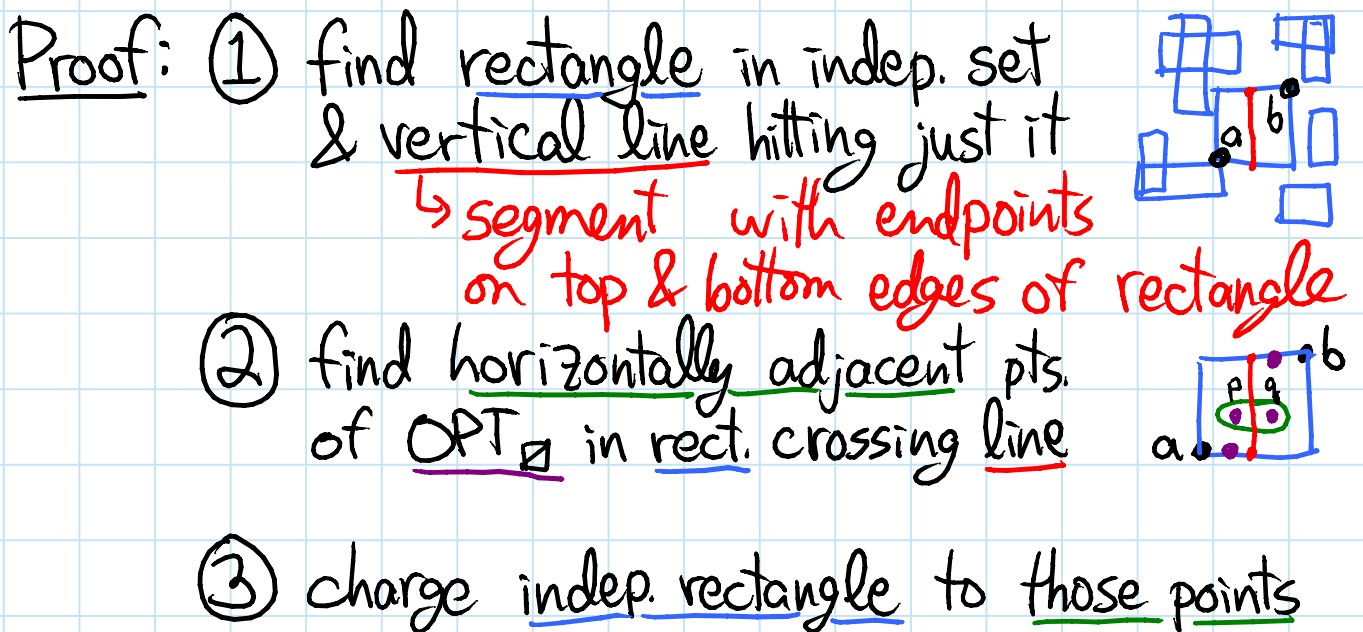 Proof: ① find rectangle in indep. set
& vertical line hitting just it
↳ segment with endpoints
on top & bottom edges of rectangle
a b
② find horizontally adjacent pts.
of OPT⍁ in rect. crossing line
b
p q
a
③ charge indep. rectangle to those points